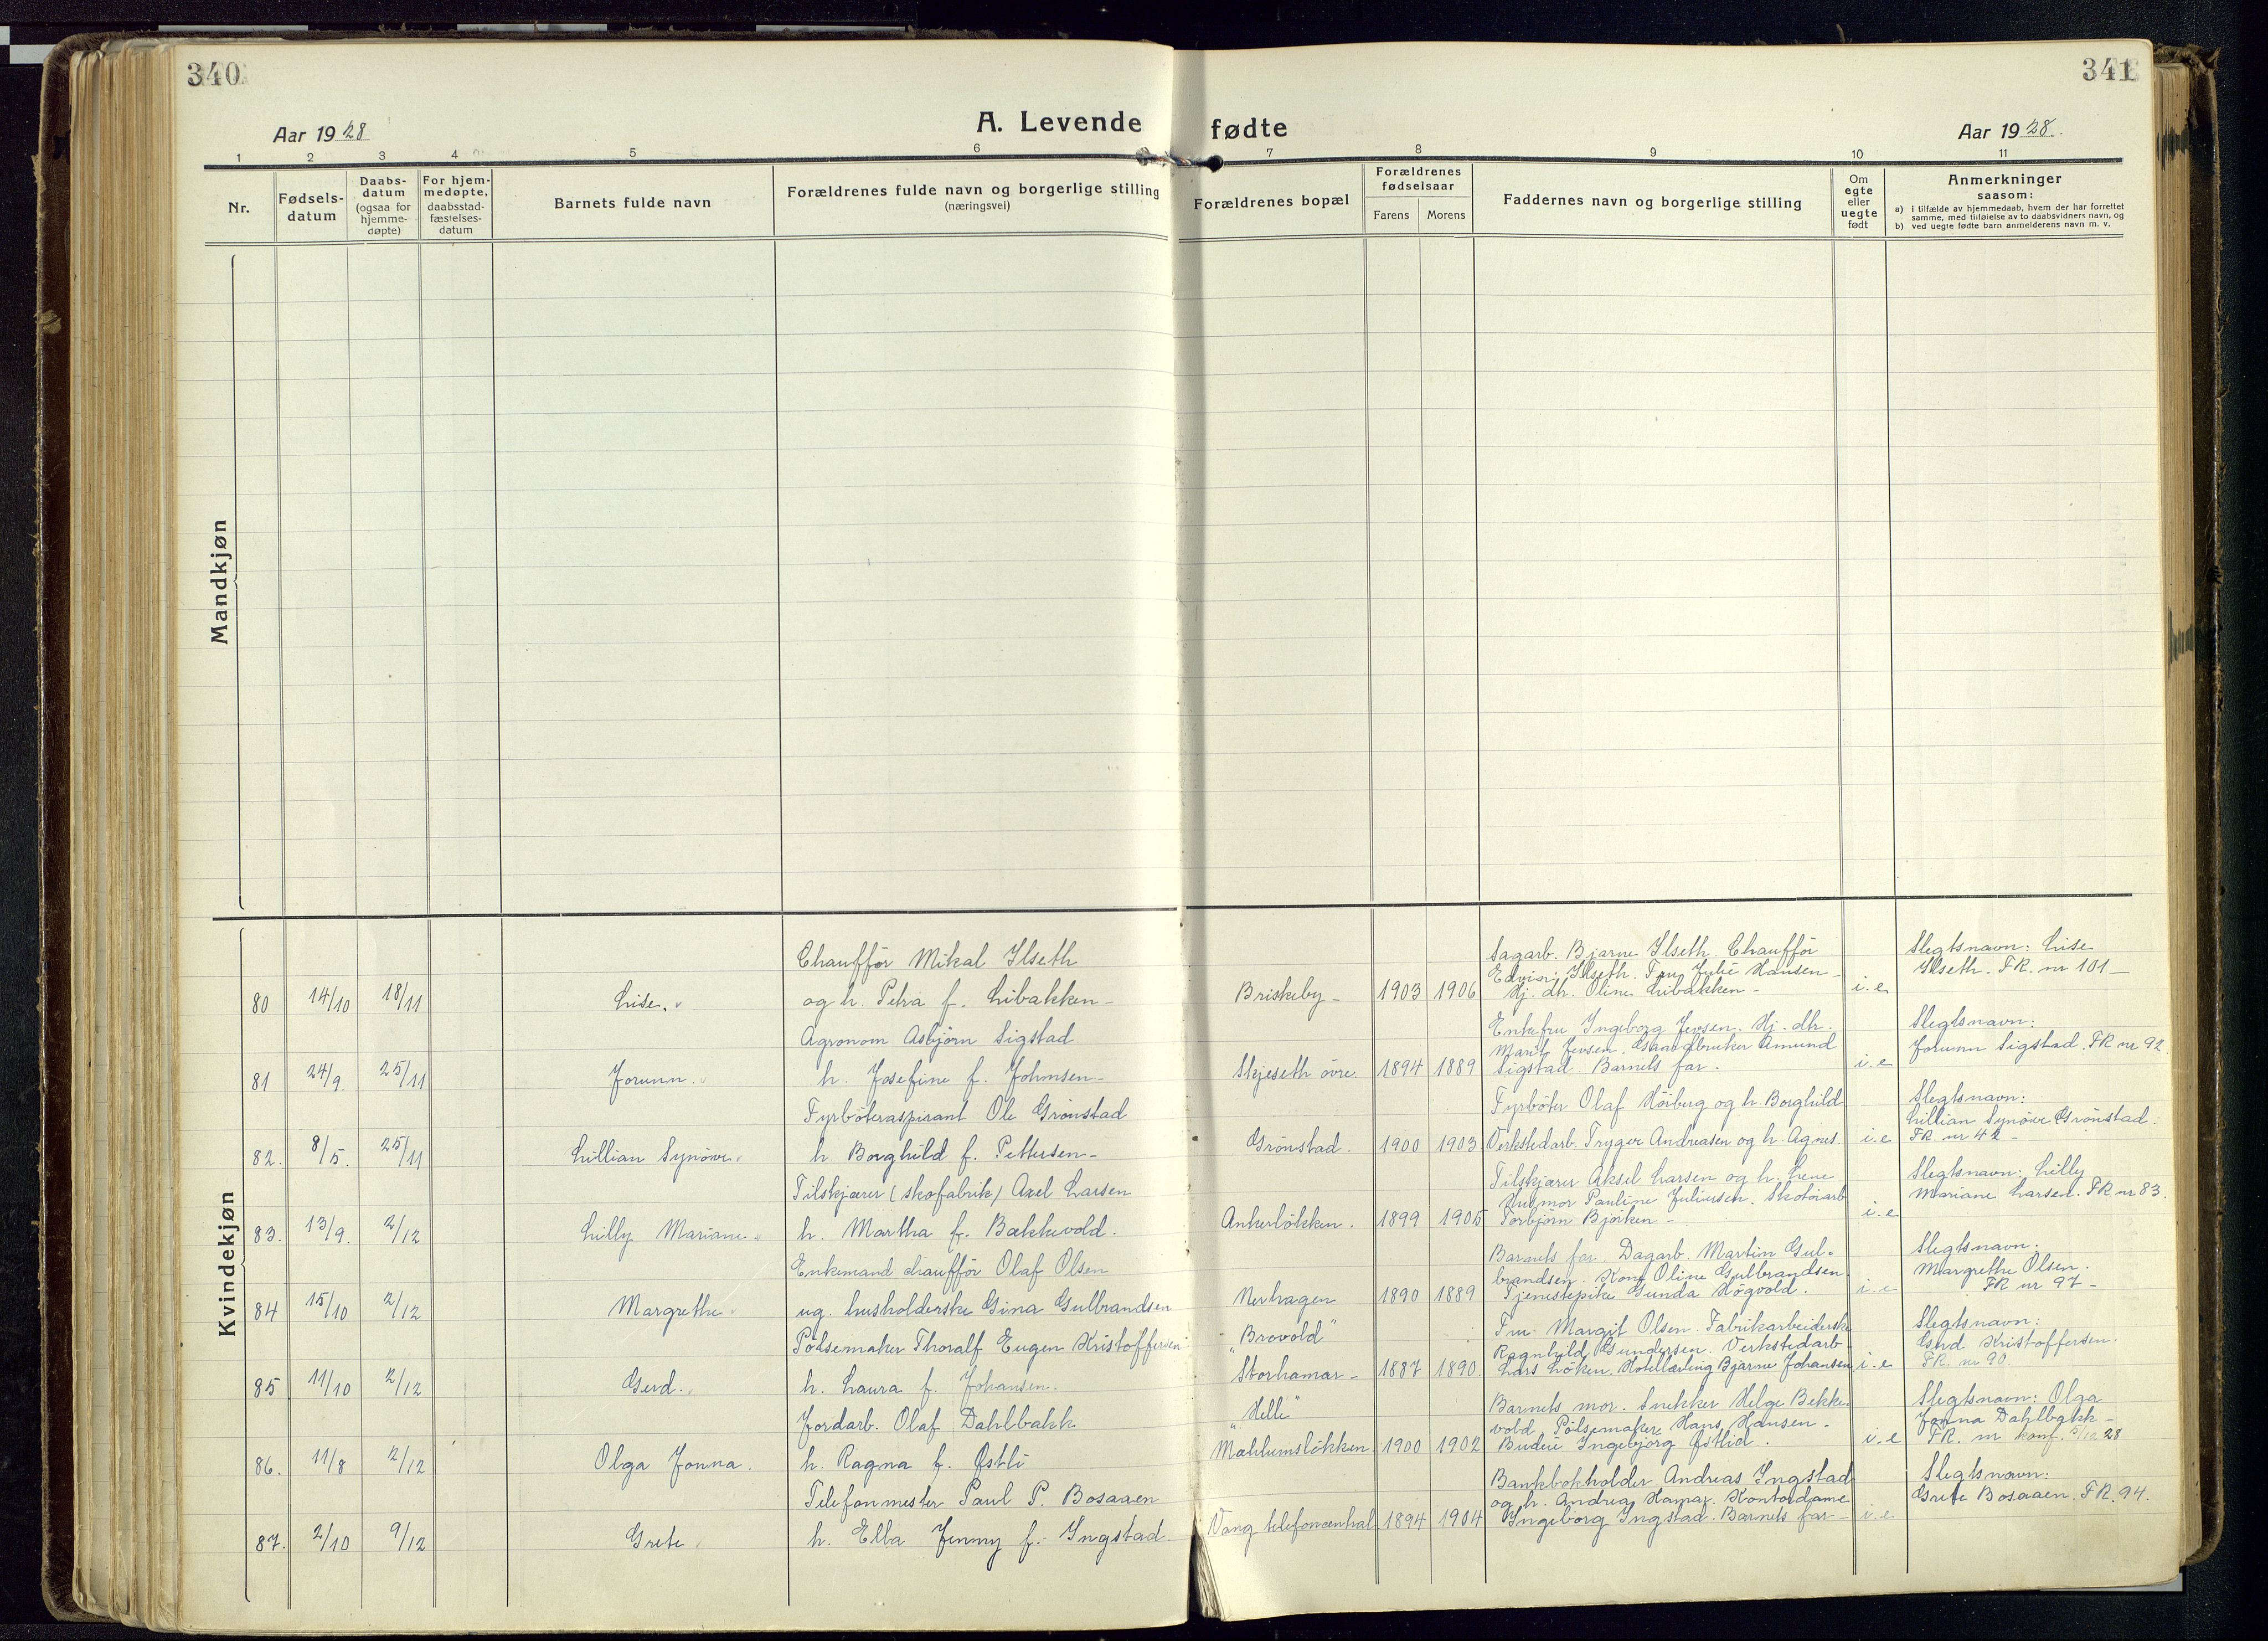 340
341
Aar 1928
A. Levende fødte
Aar 1928.
1 2 3 4 5 6 7 8 9 10 11
Nr.
Fødsels-
datum
Daabs-
datum
(ogsaa for
hjemme-
døpte)
For hjem-
medøpte,
daabsstad-
fæstelses-
datum
Barnets fulde navn
Forældrenes fulde navn og borgerlige stilling
(næringsvei)
Forældrenes bopæl
Forældrenes
fødselsaar
Farens
Morens
Faddernes navn og borgerlige stilling
Om
egte
eller
uegte
født
Anmerkninger
saasom:
a) i tilfælde av hjemmedaab, hvem der har forrettet
samme, med tilføielse av to daabsvidners navn, og
b) ved uegte fødte barn anmelderens navn m. v.
Mandkjøn
Kvindekjøn
80 14/10 18/11 Lise.
Chauffør Mikal Ilseth
og h. Petra f. Libakken -
Briskeby - 1903 1906
Sagarb. Bjarne Ilseth Chauffør
Edvin Ilseth. Fru Julie Hansen -
Hj. dh. Oline Libakken -
i. e.
Slegtsnavn: Lise
Ilseth. FR. nr 101 -
81 24/9. 25/11 Jorunn.
Agronom Asbjørn Sigstad
h. Josefine f. Johnsen -
Skjeseth øvre. 1894 1889
Enkefru Ingeborg Jevsen. Hj. dh.
Marit Jevsen. Gaardbruker Amund
Sigstad. Barnets far.
i. e
Slegtsnavn:
Jorunn Sigstad. FR nr 92
82. 8/5. 25/11 Lillian Synøve.
Fyrbøteraspirant Ole Grønstad
h. Borghild f. Pettersen -
Grønstad. 1900 1903
Fyrbøter Olaf Høiberg og h. Borghild
Verkstedarb. Trygve Andreasen og h. Agnes.
i. e
Slegtsnavn:
Lillian Synøve Grønstad.
FR. nr 42 -
83. 13/9. 2/12 Lilly Mariane.
Tilskjærer (skofabrik) Axel Larsen
h. Martha f. Bækkevold.
Ankerløkken. 1899 1905
Tilskjærer Aksel Larsen og h. Lene
Husmor Pauline Juliusen. Skotøiarb
Torbjørn Bjørken -
i. e
Slegtsnavn: Lilly
Mariane Larsen. FR nr 83.
84 15/10 2/12 Margrethe.
Enkemand chauffør Olaf Olsen
ug. husholderske Gina Gulbrandsen
Nerhagen 1890 1889
Barnets far. Dagarb. Martin Gul-
brandsen. Kone Oline Gulbrandsen
Tjenestepike Gunda Høgvold.
i. e
Slegtsnavn:
Margrethe Olsen.
FR nr 97 -
85 11/10 2/12 Gerd.
Pølsemaker Thoralf Eugen Kristoffersen
h. Laura f. Johansen.
"Brovold"
Storhamar - 1887 1890.
Fru Margit Olsen. Fabrikarbeiderske
Ragnhild Gundersen. Verkstedarb.
Lars Løken. Hotellærling Bjarne Johansen
i. e
Slegtsnavn:
Gerd Kristoffersen.
FR. nr 90.
86. 11/8 2/12 Olga Jonna.
Jordarb. Olaf Dahlbakk
h. Ragna f. Østli
"Helle"
Mahlumsløkken. 1900 1902
Barnets mor. Snekker Helge Bekke-
vold Pølsemaker Hans Hansen -
Budeie Ingebjørg Østlid.
i. e
Slegtsnavn: Olga
Jonna Dahlbakk -
FR. nr konf. 28
87. 2/10 9/12 Grete
Telefonmester Paul P. Bosaaen
h. Ella Jenny f. Ingstad.
Vang telefoncentral 1894 1904
Bankbokholder Andreas Ingstad
og h. Andrea Hamar. Kontordame
Ingeborg Ingstad. Barnets far -
i. e.
Slegtsnavn:
Grete Bosaaen. FR. 94.